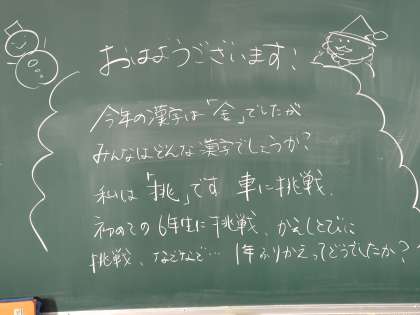 おはようございます!
今年の漢字は「金」でしたが
みんなはどんな漢字でしょうか?
私は「挑」です 車に挑戦、
初めての6年生に挑戦、かえしとびに
挑戦、などなど… 1年ふりかえってどうでしたか?